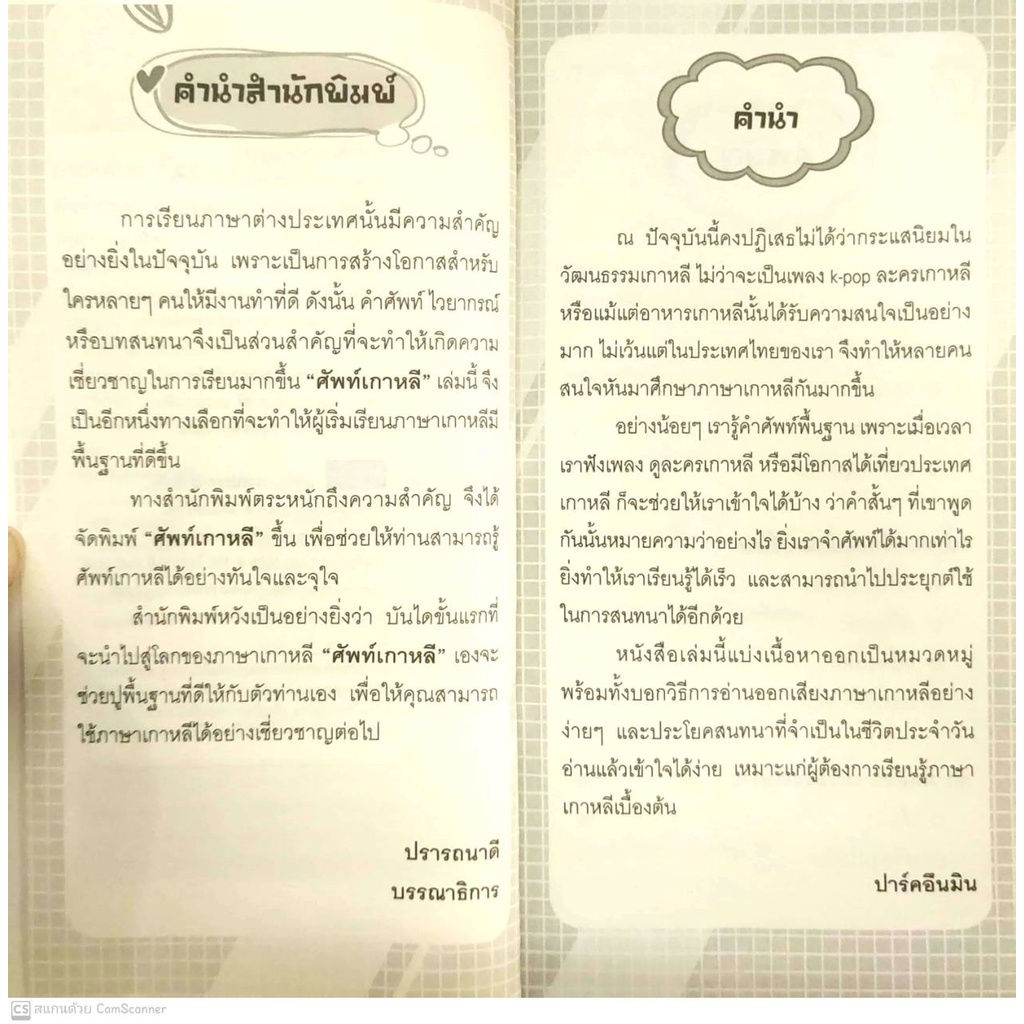 คำนำสำนักพิมพ์
การเรียนภาษาต่างประเทศนั้นมีความสำคัญ
อย่างยิ่งในปัจจุบัน เพราะเป็นการสร้างโอกาสสำหรับ
ใครหลายๆ คนให้มีงานทำที่ดี ดังนั้น คำศัพท์ ไวยากรณ์
หรือบทสนทนาจึงเป็นส่วนสำคัญที่จะทำให้เกิดความ
เชี่ยวชาญในการเรียนมากขึ้น “ศัพท์เกาหลี” เล่มนี้ จึง
เป็นอีกหนึ่งทางเลือกที่จะทำให้ผู้เริ่มเรียนภาษาเกาหลีมี
พื้นฐานที่ดีขึ้น
ทางสำนักพิมพ์ตระหนักถึงความสำคัญ จึงได้
จัดพิมพ์ “ศัพท์เกาหลี” ขึ้น เพื่อช่วยให้ท่านสามารถรู้
ศัพท์เกาหลีได้อย่างทันใจและจุใจ
สำนักพิมพ์หวังเป็นอย่างยิ่งว่า บันไดขั้นแรกที่
จะนำไปสู่โลกของภาษาเกาหลี “ศัพท์เกาหลี” เองจะ
ช่วยปูพื้นฐานที่ดีให้กับตัวท่านเอง เพื่อให้คุณสามารถ
ใช้ภาษาเกาหลีได้อย่างเชี่ยวชาญต่อไป
ปรารถนาดี
บรรณาธิการ
คำนำ
ณ ปัจจุบันนี้คงปฏิเสธไม่ได้ว่ากระแสนิยมใน
วัฒนธรรมเกาหลี ไม่ว่าจะเป็นเพลง k-pop ละครเกาหลี
หรือแม้แต่อาหารเกาหลีนั้นได้รับความสนใจเป็นอย่าง
มาก ไม่เว้นแต่ในประเทศไทยของเรา จึงทำให้หลายคน
สนใจหันมาศึกษาภาษาเกาหลีกันมากขึ้น
อย่างน้อยๆ เรารู้คำศัพท์พื้นฐาน เพราะเมื่อเวลา
เราฟังเพลง ดูละครเกาหลี หรือมีโอกาสได้เที่ยวประเทศ
เกาหลี ก็จะช่วยให้เราเข้าใจได้บ้าง ว่าคำสั้นๆ ที่เขาพูด
กันนั้นหมายความว่าอย่างไร ยิ่งเราจำศัพท์ได้มากเท่าไร
ยิ่งทำให้เราเรียนรู้ได้เร็ว และสามารถนำไปประยุกต์ใช้
ในการสนทนาได้อีกด้วย
หนังสือเล่มนี้แบ่งเนื้อหาออกเป็นหมวดหมู่
พร้อมทั้งบอกวิธีการอ่านออกเสียงภาษาเกาหลีอย่าง
ง่ายๆ และประโยคสนทนาที่จำเป็นในชีวิตประจำวัน
อ่านแล้วเข้าใจได้ง่าย เหมาะแก่ผู้ต้องการเรียนรู้ภาษา
เกาหลีเบื้องต้น
ปาร์คอึนมิน
CS สแกนด้วย CamScanner